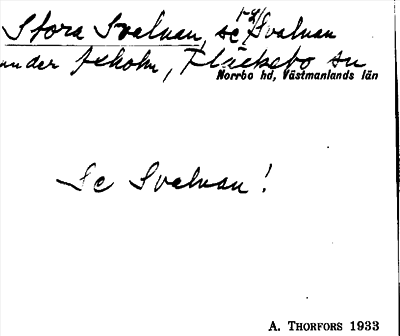 Stora Svalvan, se 1-2/ Svalvan
under Ekholm, Fläckebo sn
Norrbo hd, Västmanlands län
Se Svalvan!
A. THORFORS 1933